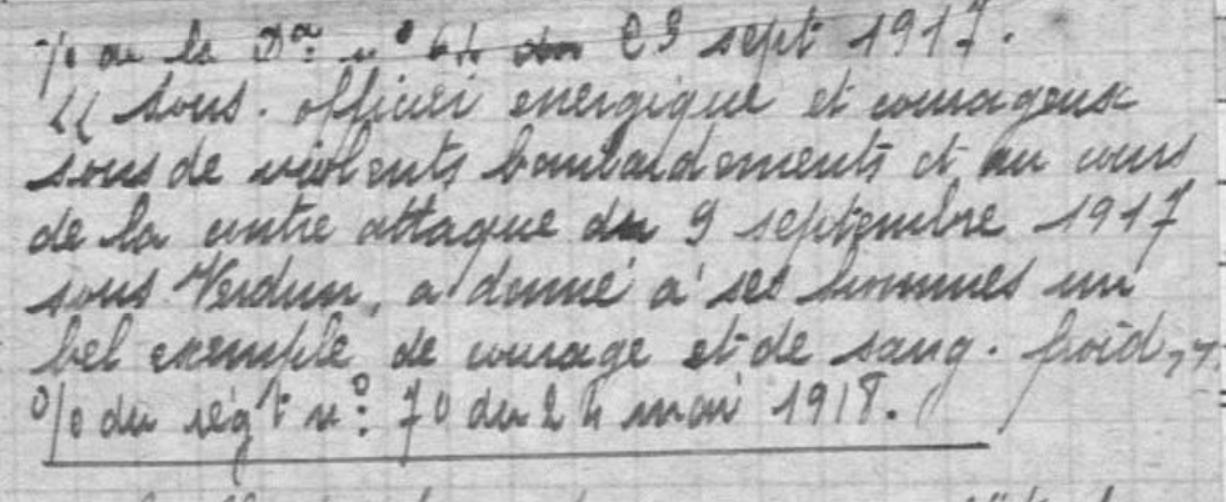 % de la Don n° 64 du 23 sept 1917.
"sous-officier energique et courageux
sous de violents bombardements et au cours
de la contre attaque du 9 septembre 1917
sous Verdun, a donné à ses hommes un
bel exemple de courage et de sang-froid,"
% du régt n° 70 du 24 mai 1918.